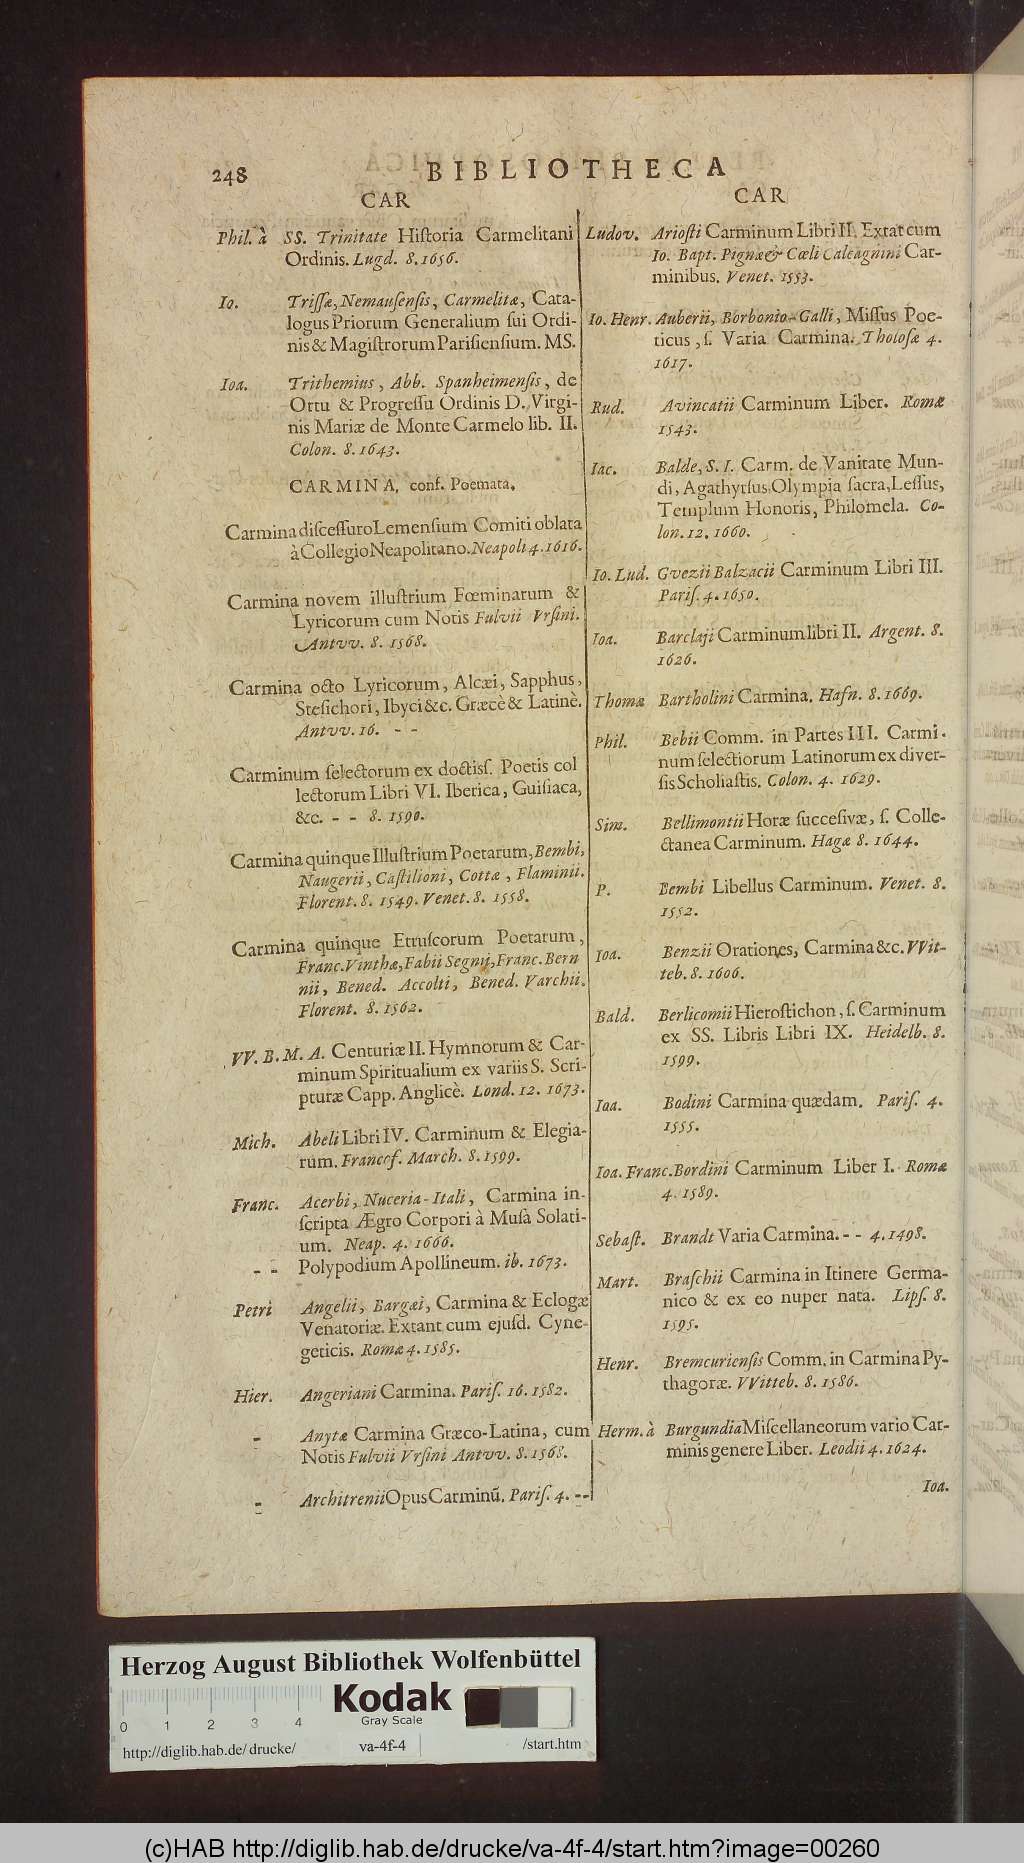 248
BIBLIOTHECA
CAR
Phil. à SS. Trinitate Historia Carmelitani
Ordinis. Lugd. 8. 1656.
Io. Trissæ, Nemausensis, Carmelitæ, Cata-
logus Priorum Generalium sui Ordi-
nis & Magistrorum Parisiensium. MS.
Ioa. Trithemius, Abb. Spanheimensis, de
Ortu & Progressu Ordinis D. Virgi-
nis Mariæ de Monte Carmelo lib. II.
Colon. 8. 1643.
CARMINA, conf. Poemata.
Carmina discessuro Lemensium Comiti oblata
à Collegio Neapolitano. Neapoli 4. 1616.
Carmina novem illustrium Fœminarum &
Lyricorum cum Notis Fulvii Vrsini.
Antvv. 8. 1568.
Carmina octo Lyricorum, Alcæi, Sapphus,
Stesichori, Ibyci &c. Græcè & Latinè.
Antvv. 16. - -
Carminum selectorum ex doctiss. Poetis col
lectorum Libri VI. Iberica, Guisiaca,
&c. - - 8. 1590.
Carmina quinque Illustrium Poetarum, Bembi,
Naugerii, Castilioni, Cottæ, Flaminii.
Florent. 8. 1549. Venet. 8. 1558.
Carmina quinque Etruscorum Poetarum,
Franc. Vinthæ, Fabii Segnii, Franc. Bern
nii, Bened. Accolti, Bened. Varchii.
Florent. 8. 1562.
VV. B. M. A. Centuriæ II. Hymnorum & Car-
minum Spiritualium ex variis S. Scri-
pturæ Capp. Anglicè. Lond. 12. 1673.
Mich. Abeli Libri IV. Carminum & Elegia-
rum. Francof. March. 8. 1599.
Franc. Acerbi, Nuceria-Itali, Carmina in-
scripta Ægro Corpori à Musà Solati-
um. Neap. 4. 1666.
- - Polypodium Apollineum. ib. 1673.
Petri Angelii, Bargæi, Carmina & Eclogæ
Venatoriæ. Extant cum ejusd. Cyne-
geticis. Romæ 4. 1585.
Hier. Angeriani Carmina. Paris. 16. 1582.
- Anytæ Carmina Græco-Latina, cum
Notis Fulvii Vrsini Antvv. 8. 1568.
- Architrenii Opus Carminũ. Paris. 4. - -
CAR
Ludov. Ariosti Carminum Libri II. Extat cum
Io. Bapt. Pignæ & Cœli Calcagnini Car-
minibus. Venet. 1553.
Io. Henr. Auberii, Borbonio-Galli, Missus Poe-
ticus, s. Varia Carmina. Tholosæ 4.
1617.
Rud. Avincatii Carminum Liber. Romæ
1543.
Iac. Balde, S. I. Carm. de Vanitate Mun-
di, Agathyrsus, Olympia sacra, Lessus,
Templum Honoris, Philomela. Co-
lon. 12. 1660.
Io. Lud. Gvezii Balzacii Carminum Libri III.
Paris. 4. 1650.
Ioa. Barclaji Carminum libri II. Argent. 8.
1626.
Thomæ Bartholini Carmina. Hafn. 8. 1669.
Phil. Bebii Comm. in Partes III. Carmi-
num selectiorum Latinorum ex diver-
sis Scholiastis. Colon. 4. 1629.
Sim. Bellimontii Horæ succesivæ, s. Colle-
ctanea Carminum. Hagæ 8. 1644.
P. Bembi Libellus Carminum. Venet. 8.
1552.
Ioa. Benzii Orationes, Carmina &c. VVit-
teb. 8. 1606.
Bald. Berlicomii Hierostichon, s. Carminum
ex SS. Libris Libri IX. Heidelb. 8.
1599.
Ioa. Bodini Carmina quædam. Paris. 4.
1555.
Ioa. Franc. Bordini Carminum Liber I. Romæ
4. 1589.
Sebast. Brandt Varia Carmina. - - 4. 1498.
Mart. Braschii Carmina in Itinere Germa-
nico & ex eo nuper nata. Lips. 8.
1595.
Henr. Bremcuriensis Comm. in Carmina Py-
thagoræ. VVitteb. 8. 1586.
Herm. à Burgundia Miscellaneorum vario Car-
minis genere Liber. Leodii 4. 1624.
Ioa.
Herzog August Bibliothek Wolfenbüttel
Kodak
Gray Scale
0 1 2 3 4
http://diglib.hab.de/drucke/ va-4f-4 /start.htm
(c)HAB http://diglib.hab.de/drucke/va-4f-4/start.htm?image=00260